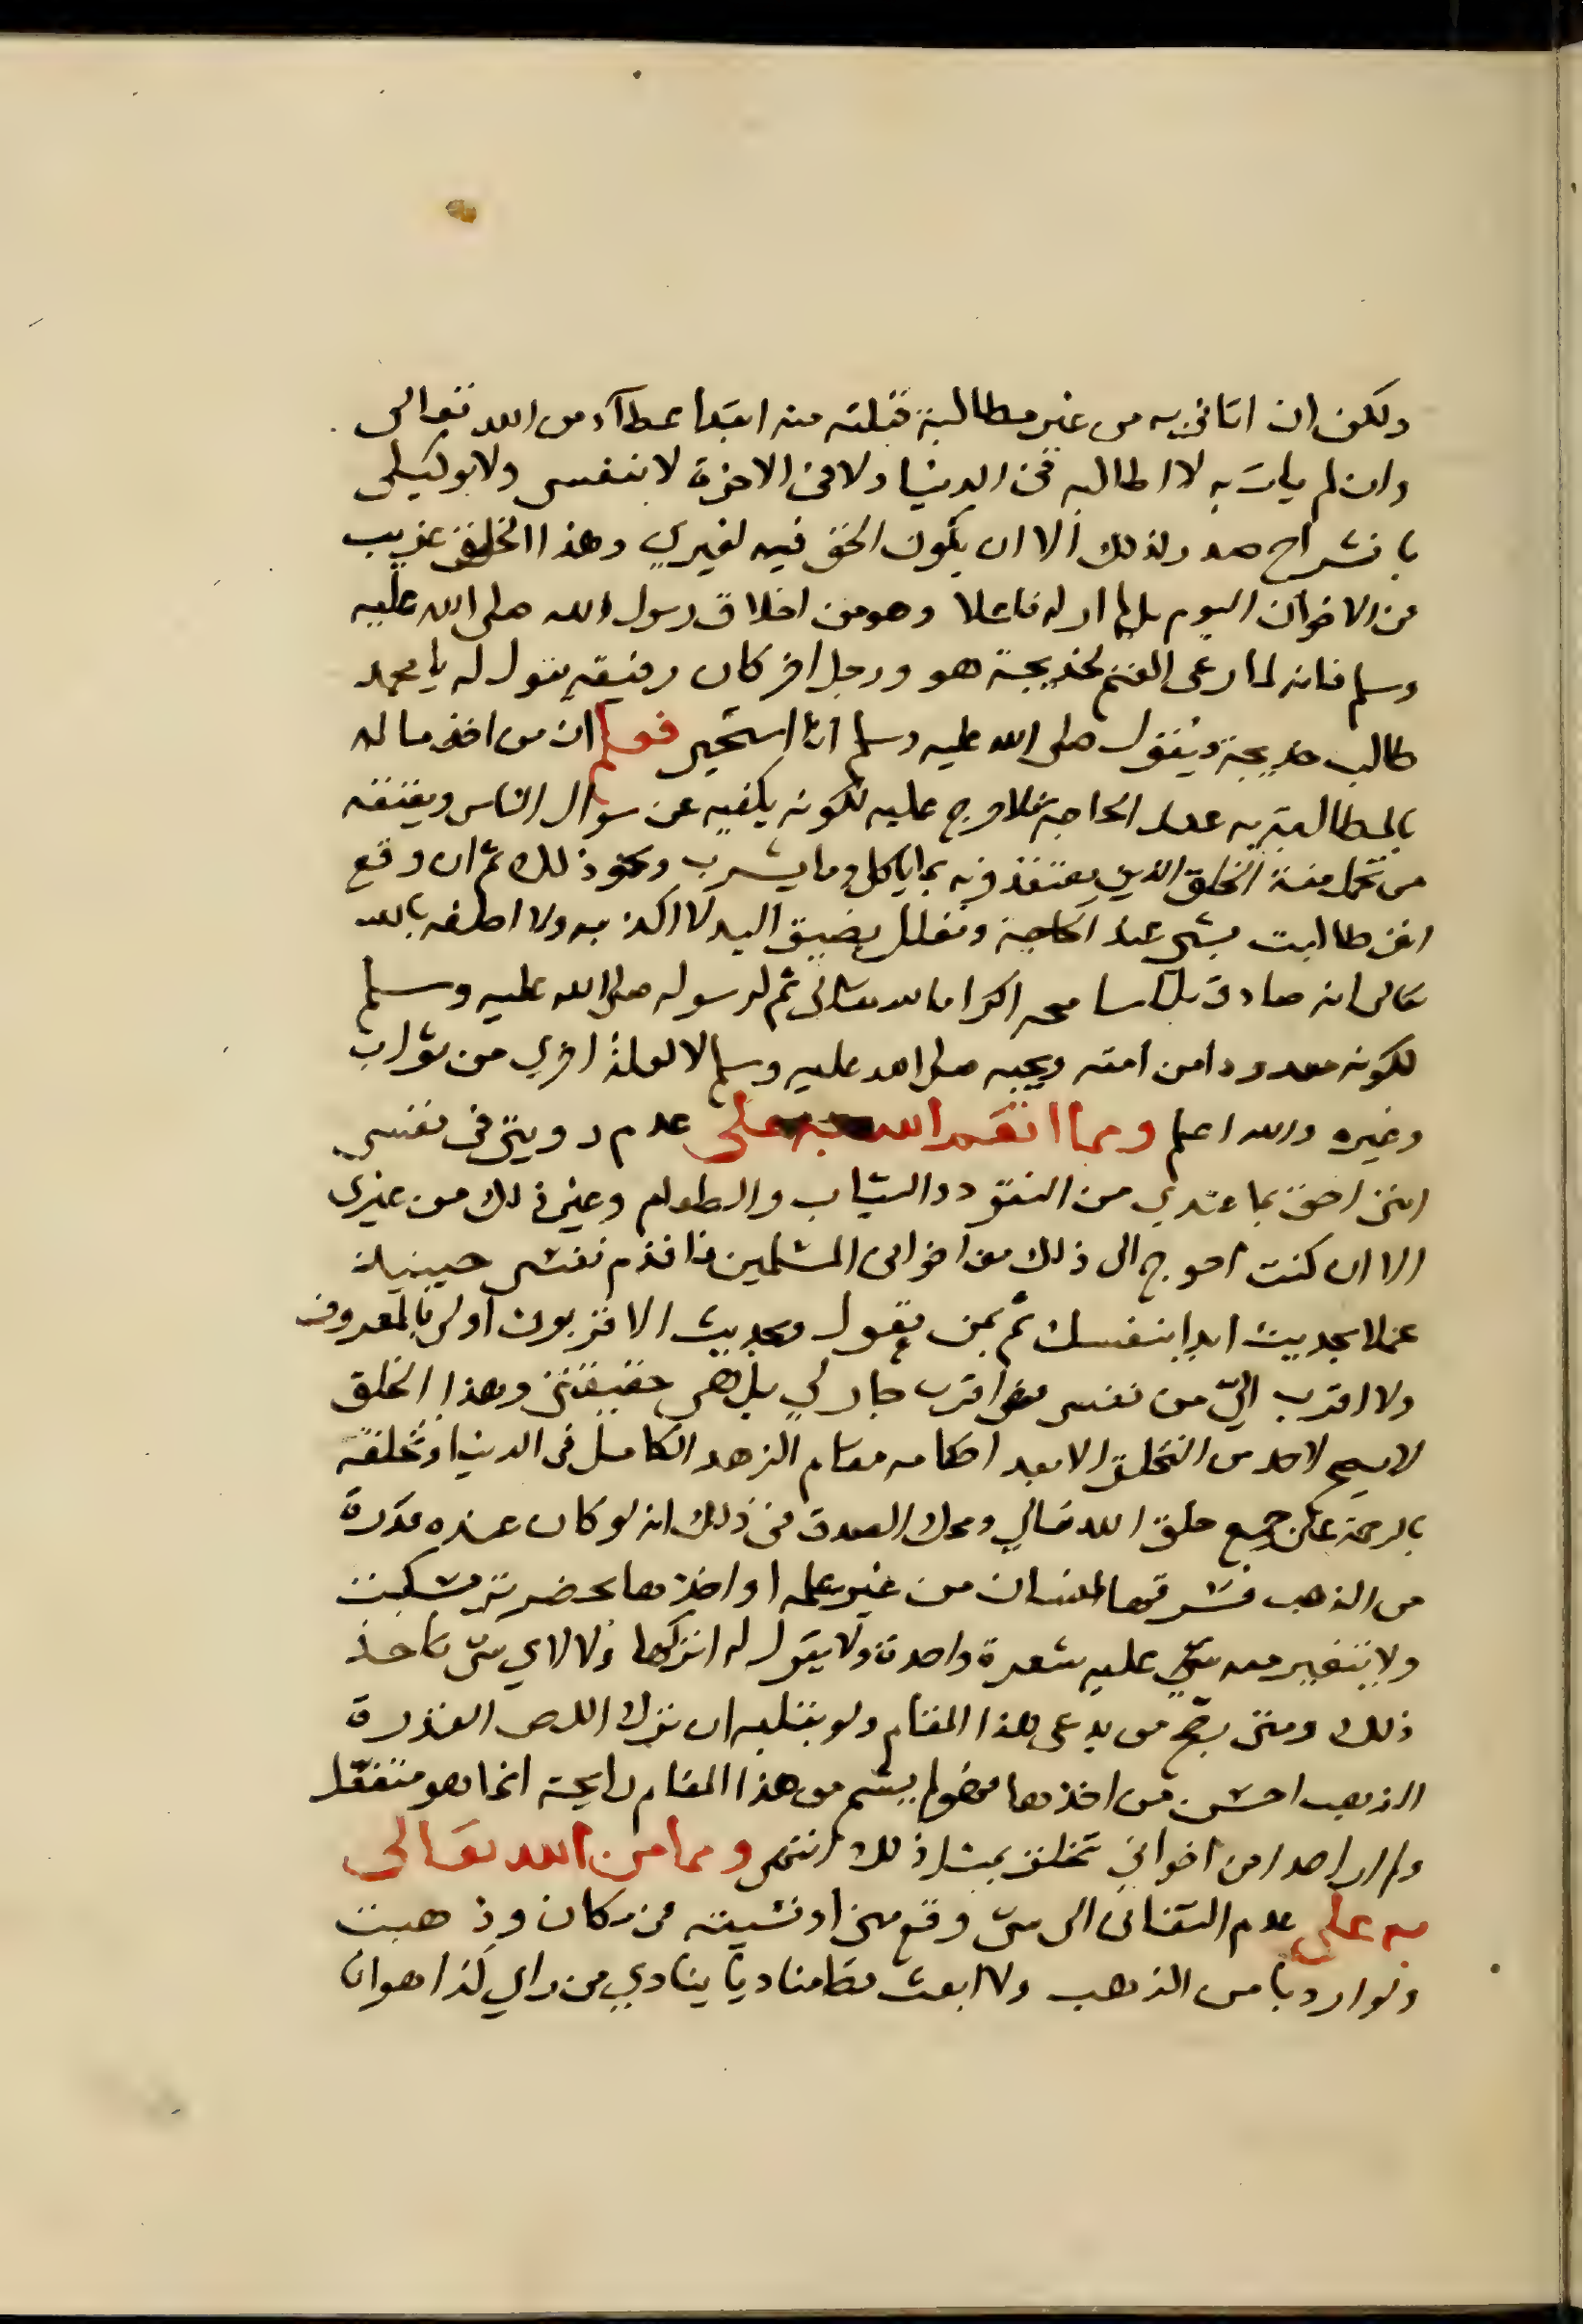 ولكن ان اتاني به من غير مطالبة قبلته منه ابتداء عطاء من الله تعالى
وان لم يات به لا اطالبه في الدنيا ولا في الاخرة لا بنفسي ولا بوكيلي
بانشراح صدر لذلك الا ان يكون الحق فيه لغيري وهذا الخلق غريب
من الاخوان اليوم بل لم ار له فاعلا وهو من اخلاق رسول الله صلى الله عليه
وسلم فانه لما رعى الغنم لخديجة هو ورجل اخر كان رفيقه يقول له يا محمد
طالب خديجة ويقول صلى الله عليه وسلم انا استحيي فعلم ان من اخذ ماله
بالمطالبة به عند الحاجة فلا حرج عليه لكونه يكفيه عن سوال الناس ويعتقه
من تحمل منة الخلق الذين يفتقدونه بما ياكل وما يشرب ونحو ذلك ثم ان وقع
انني طالبت بشي عند الحاجة وتعلل بضيق اليد لا اكذبه ولا احلفه بالله
على انه صادق بل اسامحه اكراما لله تعالى ثم لرسوله صلى الله عليه وسلم
لكونه معدودا من امته ويحبه صلى الله عليه وسلم لا لعلة اخرى من ثواب
وغيره والله اعلم ومما انعم الله به على عدم رويتي في نفسي
انني احق بما عندي من النقود والثياب والطعام وغير ذلك من غيري
الا ان كنت احوج الى ذلك من اخواني المسلمين فاقدم نفسي حينئذ
عملا بحديث ابدا بنفسك ثم بمن تعول وبحديث الاقربون اولى بالمعروف
ولا اقرب الي من نفسي فهي اقرب جار لي بل هي حقيقتي وهذا الخلق
لا يصح لاحد من التخلق الا بعد احكامه مقام الزهد الكامل في الدنيا وتخلقه
بالرحمة على جميع خلق الله تعالى ومحك الصدق في ذلك انه لو كان عنده قدرة
من الذهب فسرقها انسان من غير علمه او اخذها بحضرته سكت
ولا يتغير معه شي عليه شعرة واحدة ولا يقول له اتركها ولا لاي شي تاخذ
ذلك ومتى رجح من يدعي هذا المقام ولو بقلبه ان ترك اللص القدرة
الذهب احسن من اخذها فهو لم يشم من هذا المقام رايحة انما هو متفعل
ولم ار احدا من اخواني تخلق بمثل ذلك انتهى ومما من الله تعالى
به على عدم التفاتي الى شي وقع مني او نسيته في مكان وذهبت
ولو اردبا من الذهب ولا ابعث قط مناديا ينادي من راى كذا هوانا